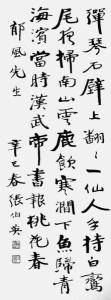 彈琴石壁上翻〻一仙人手持白鸞
尾夜掃南山雲鹿飲寒澗下魚歸青
海濱當時漢武帝書報桃花春
辛巳春張伯英
風先生